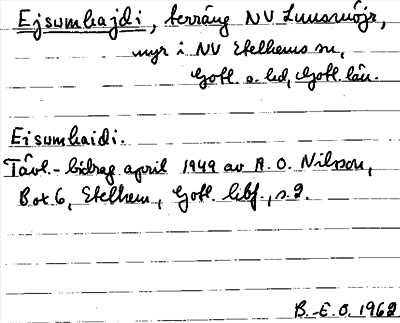 Ejsumhajdi, terräng NV Luusmöjr,
myr i NV Etelhems sn,
Gotl. s. hd, Gotl. län.
Eisumhaidi.
Tävl.-bidrag april 1949 av A. O. Nilsson,
Box 6, Etelhem, Gotl. hbf., s. 2.
B.-E. O. 1962